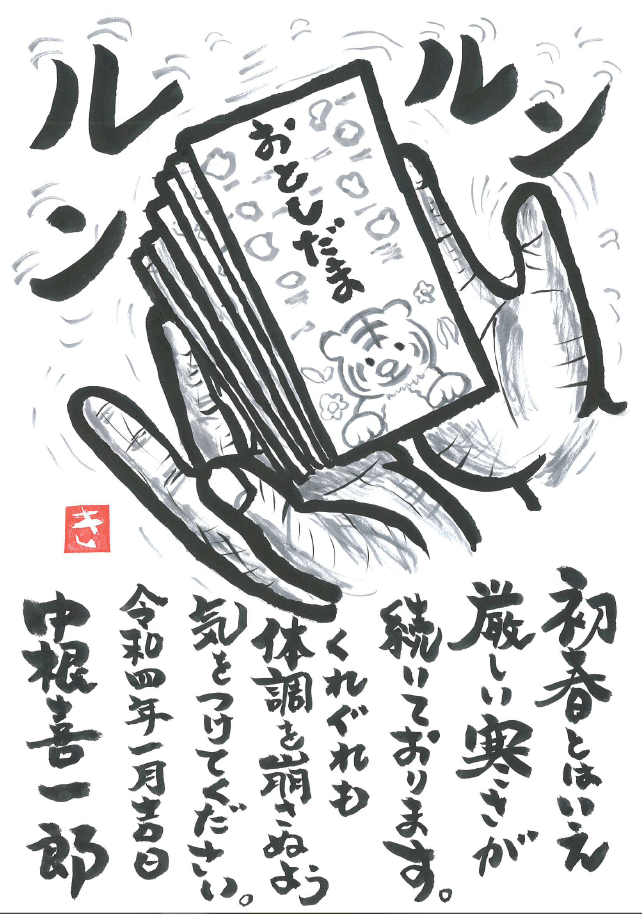 ルンルン
おとしだま
き
初春とはいえ
厳しい寒さが
続いております。
くれぐれも
体調を崩さぬよう
気をつけてください。
令和四年一月吉日
中根喜一郎